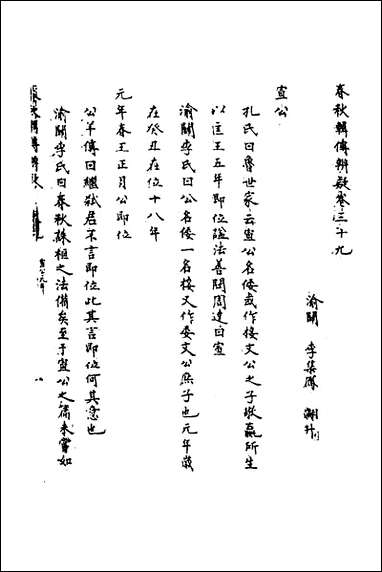 春秋輯傳辨疑卷三十九
渝關 李集鳳 翽升
宣公
孔氏曰魯世家云宣公名倭或作接文公之子敬嬴所生
以匡王五年即位諡法善問周達曰宣
渝關李氏曰公名倭一名接又作委文公庶子也元年歲
在癸丑在位十八年
元年春王正月公即位
公羊傳曰繼弒君不言即位此其言即位何其意也
渝關李氏曰春秋誅桓之法備矣至于宣公之篇未嘗如
春秋輯傳辨疑
宣公元年